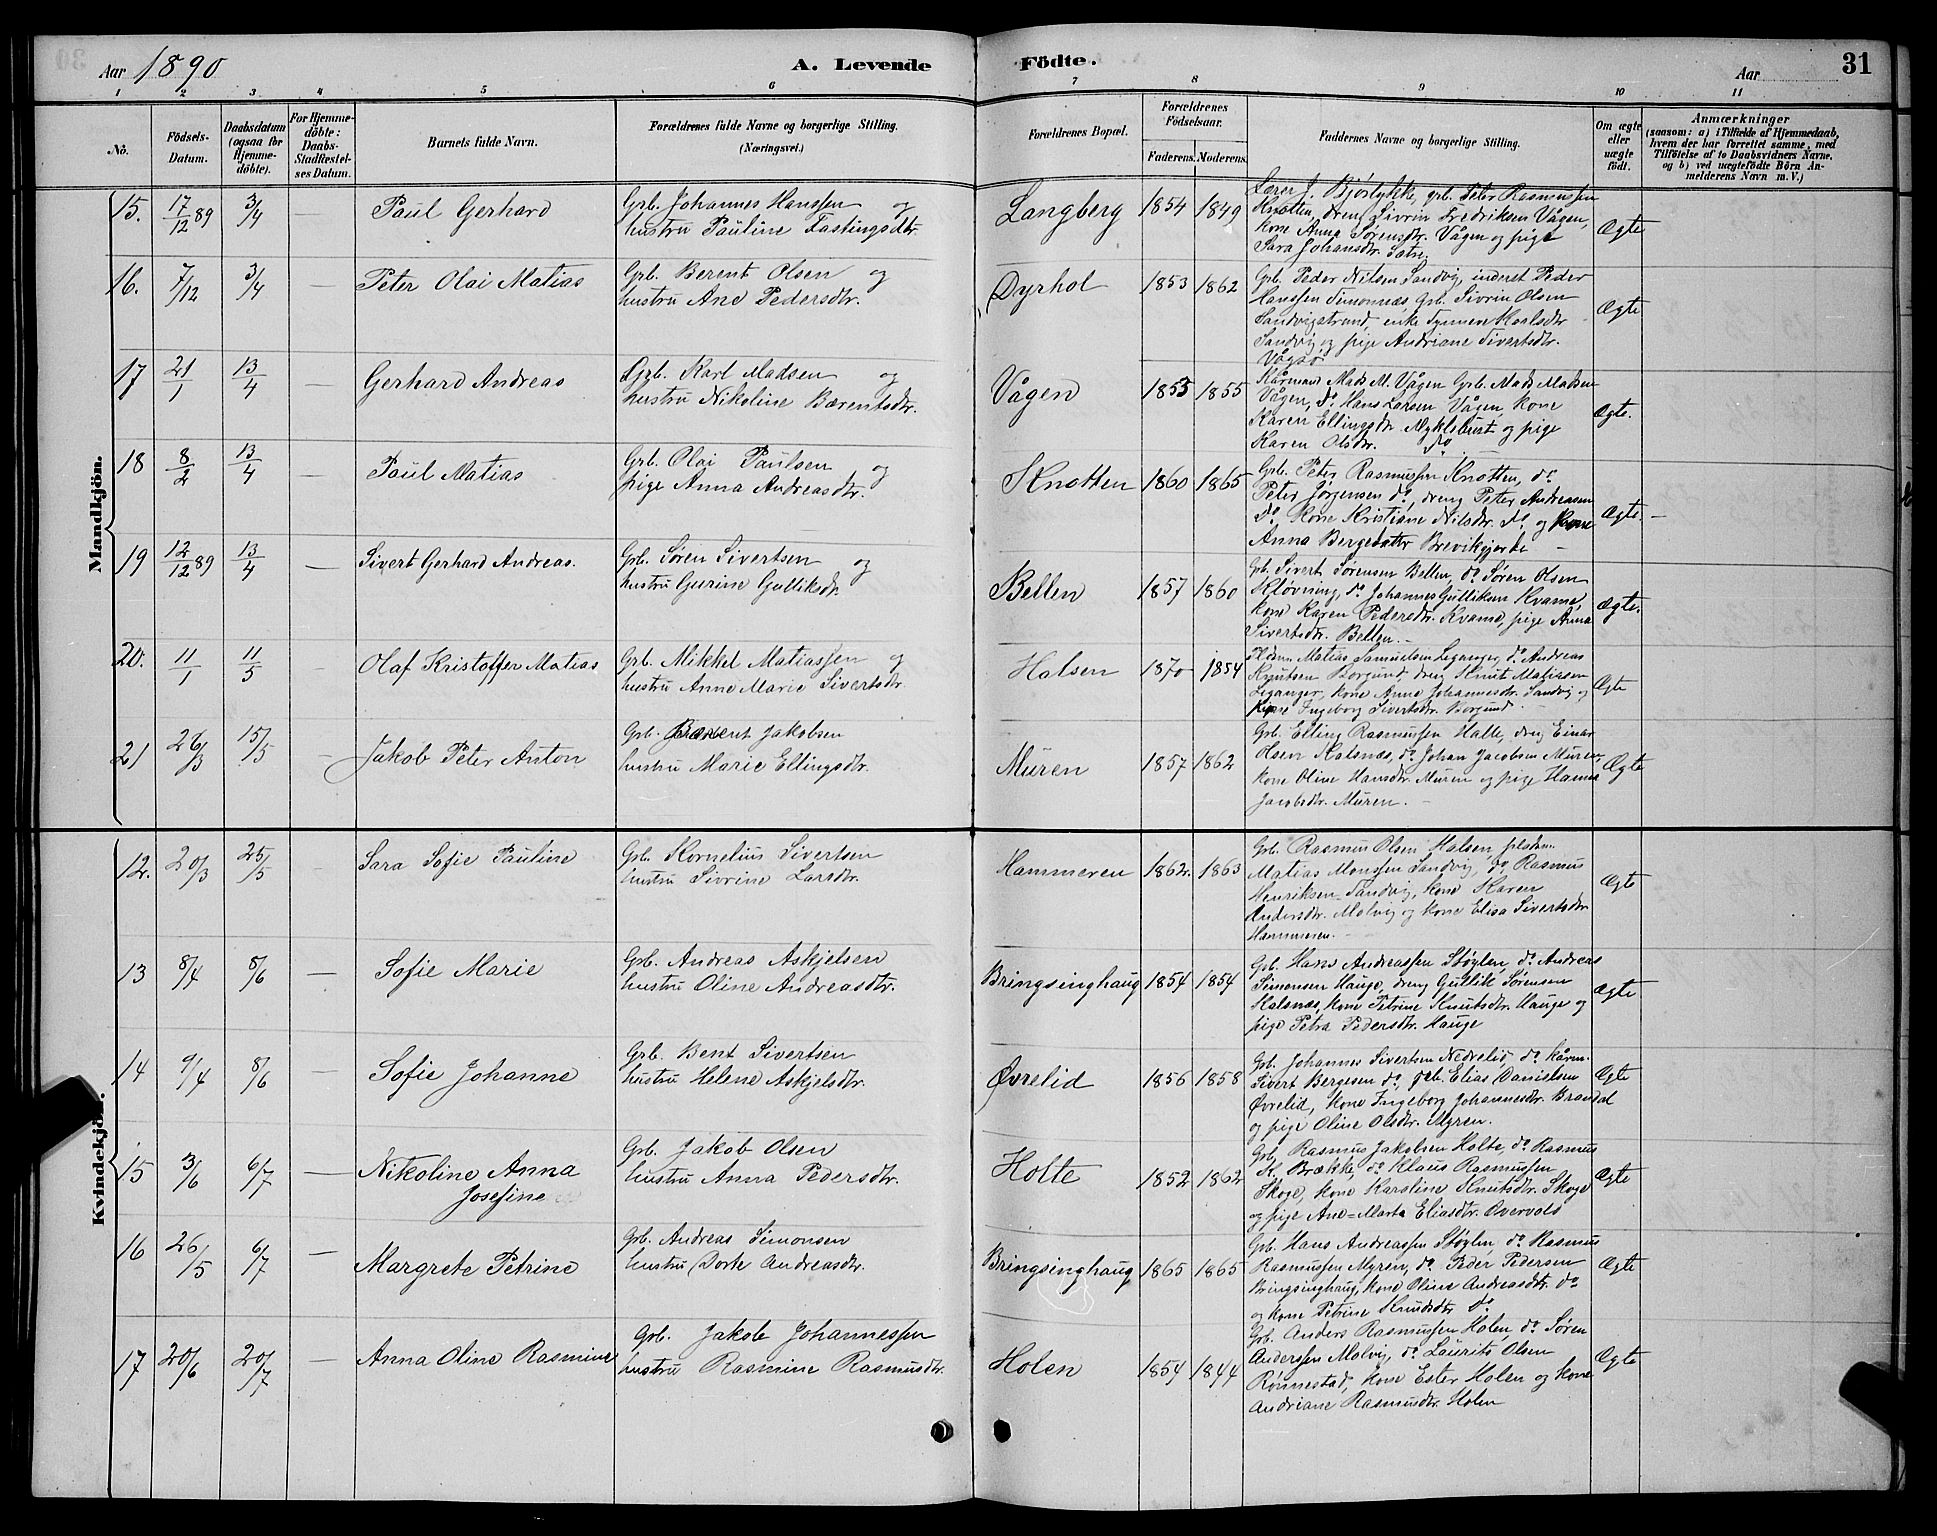 Aar 1890
A. Levende
Födte.
Aar
31
1 2 3 4 5 6 7 8 9 10 11
No.
Födsels-Datum.
Daabsdatum (ogsaa for Hjemme-döbte).
For Hjemme-döbte: Daabs-Stadfæstelses Datum.
Barnets fulde Navn.
Forældrenes fulde Navne og borgerlige Stilling.
(Næringsvei.)
Forældrenes Bopæl.
Forældrenes Födselsaar.
Faderens. Moderens.
Faddernes Navne og borgerlige Stilling.
Om ægte eller uægte födt.
Anmærkninger
(saasom: a) i Tilfælde af Hjemmedaab, hvem der har forrettet samme, med Tilföielse af to Daabsvidners Navne, og b) ved uægtefödte Börn Anmelderens Navn m. V.)
Mandkjön.
15. 17/12 89 3/4 — Paul Gerhard
Grb. Johannes Hanssen og
hustru Pauline Fastingsdtr.
Langberg 1854 1849
Lærer J. Bjørlykke, grb. Peter Rasmussen
Knotten, dreng Sivrin Fredriksen Vågen,
kone Anna Sørensdtr. Vågen og pige
Sara Johansdtr. Sætre.
Ægte
16. 7/12 3/4 — Peter Olai Matias
Grb. Berent Olsen og
hustru Ane Pedersdtr.
Dyrhol 1853 1862
Grb. Peder Nilsen Sandvig, inderst Peder
Hanssen Simonnæs Grb. Sivrin Olsen
Sandvigstrand, enke Karlsdtr
Sandvig og pige Andriane Sivertsdtr.
Vågsø
Ægte
17 21/1 13/4 — Gerhard Andreas
Grb. Karl Madsen og
hustru Nikoline Bærentsdtr.
Vågen 1855 1855
Kårmand Mads M. Vågen Grb. Mads Madsen
Vågen, do Hans Larsen Vågen, kone
Karen Ellingsdtr Myklebust og pige
Karen Olsdtr. do
Ægte.
18 8/2 13/4 — Paul Matias
Grb. Olai Paulsen og
pige Anna Andreasdtr.
Knotten 1860 1865
Grb. Peter Rasmussen Knotten, do
Peter Jørgensen do, dreng Peter Andreasen
do kone Kristiane Nilsdtr. do og kone
Anna Bergedatter Brevikgjerde —
Ægte. —
19 12/12 89 13/4 — Sivert Gerhard Andreas.
Grb. Søren Sivertsen og
hustru Gurine Gulliksdtr.
Bellen 1857 1860
Grb. Sivert Sørensen Bellen, do Søren Olsen
Kløvning, do Johannes Gulliksen Kvame,
kone Karen Pedersdtr. Kvame, pige Anna
Sivertsdtr. Bellen. —
Ægte.
20. 11/1 11/5 Olaf Kristoffer Matias
Grb. Mikkel Matiassen og
hustru Anne Marie Sivertsdtr.
Halsen 1870 1854
Matias Samuelsen Leganger, do Andreas
Knutsen Borgund dreng Knut Matiasen
Leganger, kone Anne Johannesdtr. Sandvig og
kone Ingeborg Sivertsdtr. Borgund —
Ægte
21 26/3 15/5 — Jakob Peter Anton
Grb. Berent Jakobsen
hustru Marie Ellingsdtr.
Muren 1857 1862
Grb. Elling Rasmussen Halle, dreng Einar
Olsen Halsnæs, do Johan Jacobsen Muren,
kone Oline Hansdtr. Muren og pige Hanna
Jacobsdtr. Muren. —
Ægte
Kvindekjön.
12. 20/3 25/5 — Sara Sofie Pauline
Grb. Kornelius Sivertsen
hustru Sivrine Larsdtr.
Hammeren 1862. 1863
Grb. Rasmus Olsen Halsen,
Matias Monssen Sandvig, do Rasmus
Henriksen Sandvig, kone Karen
Andersdtr. Molvig og kone Elisa Sivertsdtr.
Hammeren. —
Ægte
13 8/4 8/6 — Sofie Marie
Grb. Andreas Askjelsen
hustru Oline Andreasdtr.
Bringsinghaug 1854 1854
Grb. Hans Andreassen Støylen, do Andreas
Simonsen Hauge, dreng Gullik Sørensen
Halsnæs, kone Petrine Knutsdtr. Hauge og
pige Petra Pedersdtr. Hauge
Ægte
14 9/4 8/6 — Sofie Johanne
Grb. Bent Sivertsen
hustru Helene Askjelsdtr.
Øvrelid 1856 1858
Grb. Johannes Sivertsen Nedrelid, do kårm.
Sivert Bergesen do, grb. Elias Danielsen
Øvrelid, kone Ingeborg Johannesdtr. Brandal
og pige Oline Olsdtr. Myren.
Ægte
15 3/6 6/7 — Nikoline Anna
Josefine
Grb. Jakob Olsen
hustru Anna Pedersdtr.
Holte 1852 1862
Grb. Rasmus Jakobsen Holte, do Rasmus
K. Brække, do Klaus Rasmussen
Skoge, kone Karoline Knutsdtr. Skoge
og pige Ane=Marta Eliasdtr. Overvold
Ægte
16 26/5 6/7 — Margrete Petrine
Grb. Andreas Simonsen
hustru Dorte Andreasdtr.
Bringsinghaug 1865 1865
Grb. Hans Andreassen Støylen, do Rasmus
Rasmussen Myren, do Peder Pedersen
Bringsinghaug, kone Oline Andreasdtr. do
og kone Petrine Knudsdtr do
Ægte
17 20/6 20/7 — Anna Oline Rasmine
Grb. Jakob Johannessen
hustru Rasmine Rasmusdtr.
Holen 1854 1844
Grb. Anders Rasmussen Holen, do Søren
Anderssen Molvig, do Laurits Olsen
Rønnestad, kone Ester Holen og kone
Andriane Rasmusdtr. Holen
Ægte